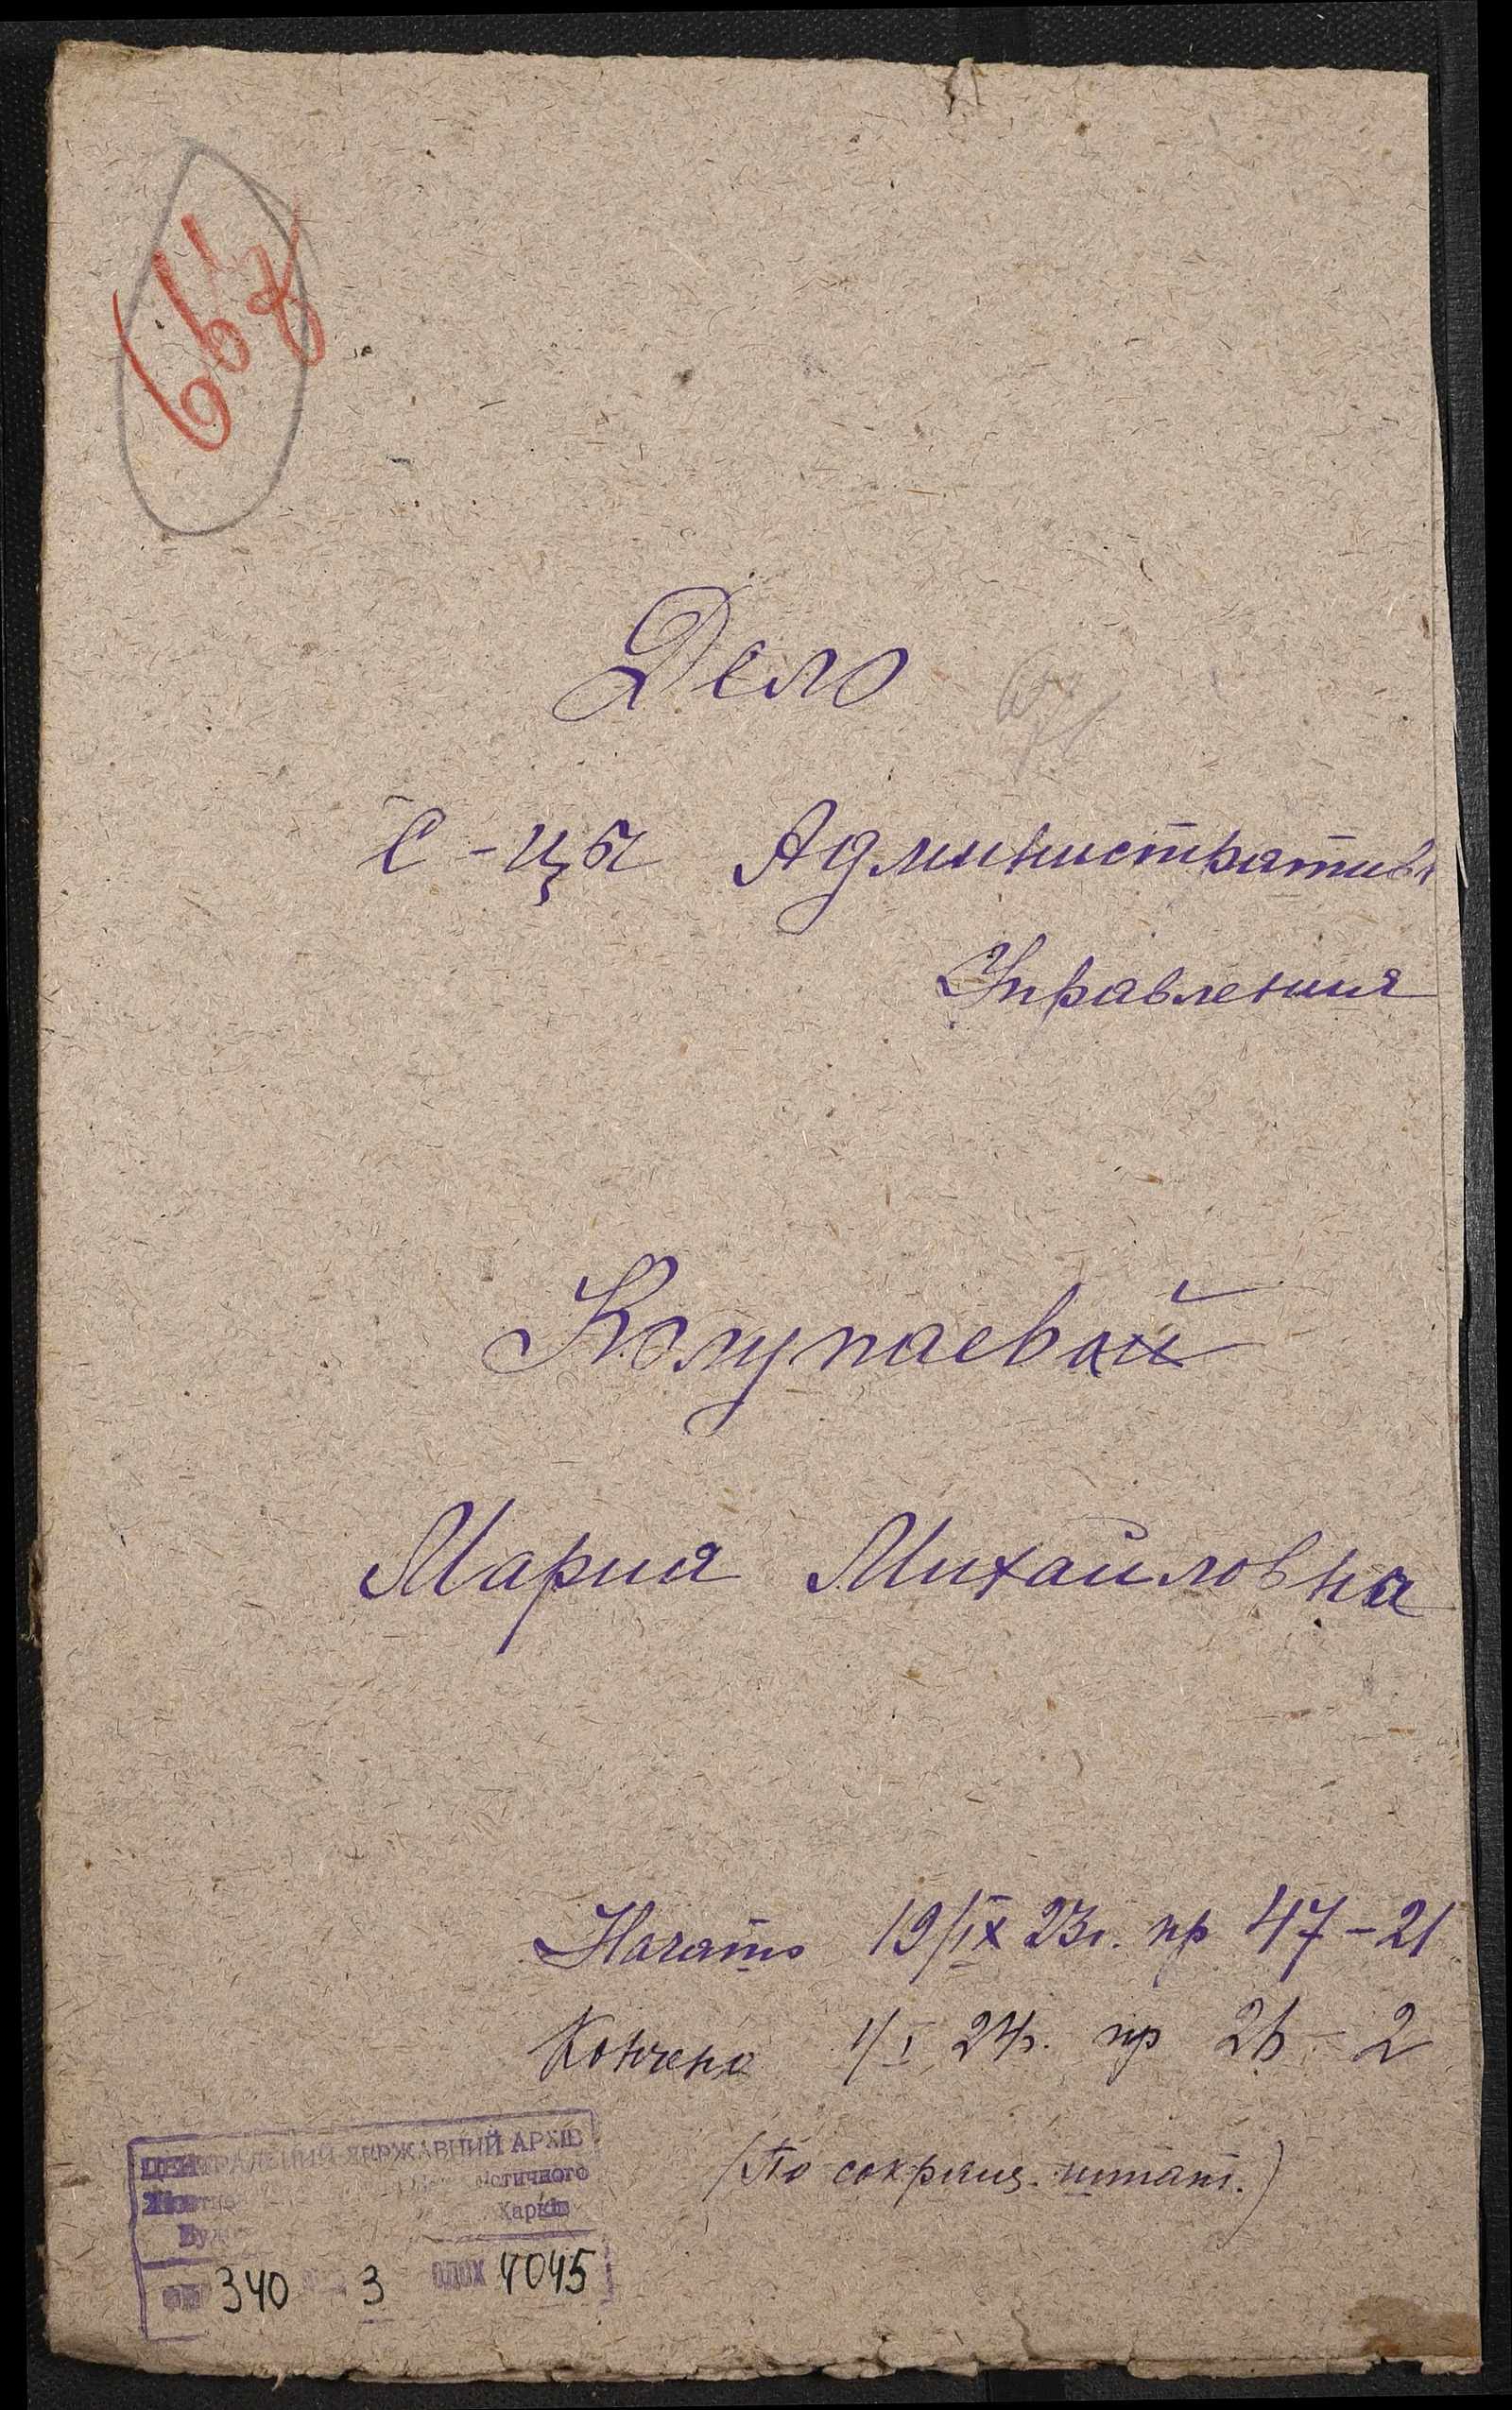 Дело
С-цы Административн
Управления
Колупаевой
Мария Михайловна
Начато 19/IX 23г. пр 47-21
Кончено 1/I 24г. пр 26-2
(По сокращ. штат.)
ЦЕНТРАЛЬНИЙ ДЕРЖАВНИЙ АРХІВ
Харків
340 3 4045